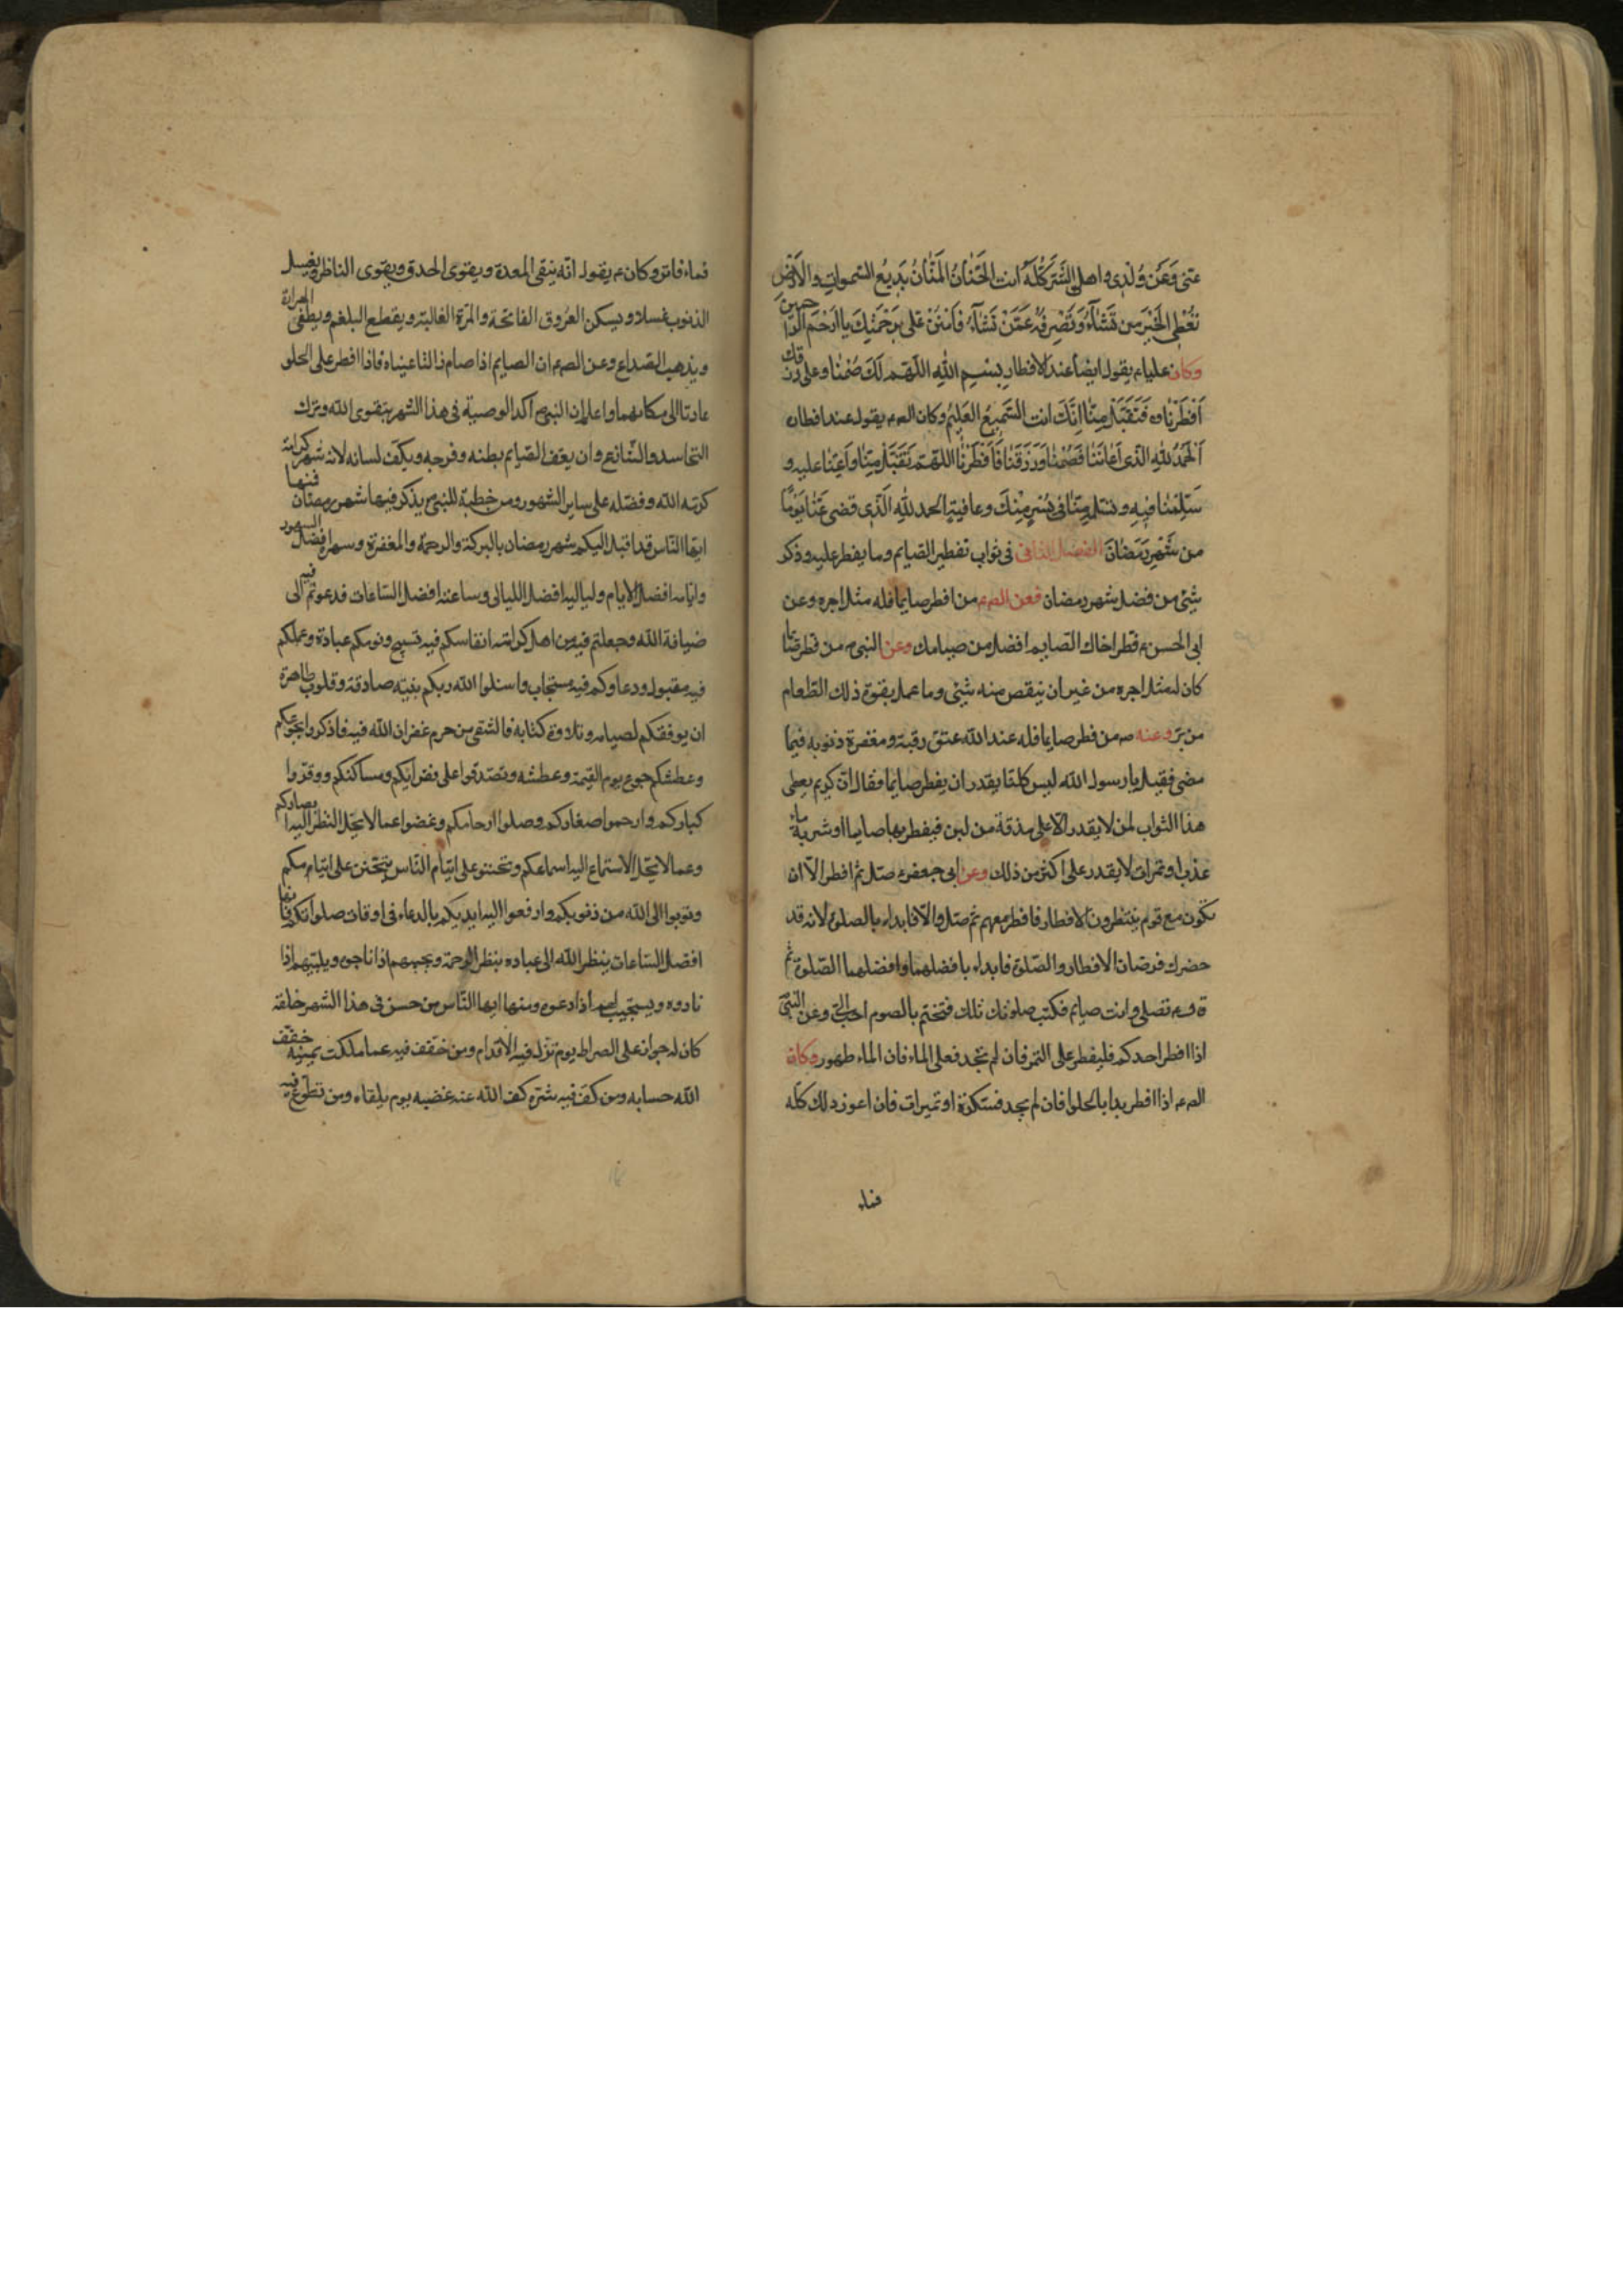 عَنّى وَعَنْ وُلْدِى واهلى الشَّرَّ كُلَّهُ انت الحَنّانُ المَنّانُ بَدِيعُ السّمواتِ والاَرْضِ
تُعْطِى الخَيْرَ مِن تَشآءُ وَتَصْرِفُهُ عَمَّنْ تَشآءُ فَامْنُنْ عَلَى بِرَحْمَتِكَ يا اَرْحَمَ الرّاحِمِينَ
وكان عليا ع يقول ايضاً عند الافطار بِسْمِ اللهِ اللّهُمَّ لَكَ صُمْنا وعلى رزقك
اَفْطَرْناه فَتَقَبَّلْ مِنّا اِنَّكَ انت السَّمِيعُ العَلِيمُ وكان الص ع يقول عند افطاره
اَلْحَمْدُ للهِ الّذى اَعانَنا فَصُمْنا وَرَزَقَنا فَاَفْطَرْنا اللّهُمَّ تَقَبَّلْ مِنّا وَاَعِنّا عليه و
سَلِّمْنا فِيهِ وتسلمه مِنّا فى يُسْرٍ مِنْكَ وعافيةٍ الحمد للهِ الَّذى قضى عَنّا يَوْمًا
من شَهْرِ رَمَضانَ الفصل الثانى فى ثواب تفطير الصايم وما يفطر عليه وذكر
شئ من فضل شهر رمضان فعن الص ع من افطر صايما فله مثل اجره وعن
ابى الحسن ع فطر اخاك الصايم افضل من صيامك وعن النبى ص من فطر صايما
كان له مثل اجره من غير ان ينقص منه شئ وما عمل بقوة ذلك الطعام
من برّ وعنه ص من فطر صايما فله عند الله عتق رقبة ومغفرة ذنوبه فيما
مضى فقيل يا رسول الله ليس كلنا يقدر ان يفطر صايما فقال ان كريم يعطى
هذا الثواب لمن لا يقدر الا على مذقة من لبن فيفطر بها صايما او شربة ماء
عذب او تمرات لا يقدر على اكثر من ذلك وعن ابى جعفر ع صلّ ثم افطر الّا ان
تكون مع قوم ينتظرون الافطار فافطر معهم ثم صلّ والّا فابداء بالصلوة لانه قد
حضرك فرضان الافطار والصّلوة فابداء بافضلهما وافضلهما الصّلوة ثم
ق وع تصلى وانت صايم فكتب صلوتك تلك فتختم بالصوم احب الىّ وعن النبىّ
اذا افطر احدكم فليفطر على التمر فان لم يجد فعلى الماء فان الماء طهور وكان
الص ع اذا افطر بدا بالحلوا فان لم يجد فسكرة او تميرات فان اعوز ذلك كله
فماء
فماء فاتر وكان ع يقول انّه ينقى المعدة ويقوى الحدق ويقوى الناظر ويغسل
الذنوب غسلا ويسكن العروق الفاتحة والمرّة الغالبة ويقطع البلغم ويطفى الحرارة
ويذهب الصّداع وعن الص ع ان الصايم اذا صام زالتا عيناه فاذا افطر على الحلو
عادتا الى مكانهما واعلم ان النبى ص اكد الوصية فى هذا الشهر بتقوى الله وترك
التحاسد والتنازع وان يعف الصّايم بطنه وفرجه ويكفّ لسانه لانه شهر كرامة
كرّمه الله وفضّله على ساير الشهور ومن خطبة للنبى ص يذكر فيها شهر رمضان فمنها
ايها النّاس قد اقبل اليكم شهر رمضان بالبركة والرحمة والمغفرة وسهره افضل الشهور
وايّامه افضل الايام ولياليه افضل الليالى وساعته افضل السّاعات قد دعوتم فيه الى
ضيافة الله وجعلتم فيه من اهل كرامته انفاسكم فيه تسبيح ونومكم عبادة وعملكم
فيه مقبول ودعاوكم فيه مستجاب واسئلوا الله ربكم بنيّة صادقة وقلوب طاهرة
ان يوفقكم لصيامه وتلاوة كتابه فالشقى من حرم غفران الله فيه فاذكروا بجوعكم
وعطشكم جوع يوم القيمة وعطشه وتصدقوا على فقرائكم ومساكنكم ووقروا
كباركم وارحموا صغاركم وصلوا ارحامكم وغضوا عما لا يحلّ النظر اليه ابصاركم
وعما لا يحلّ الاستماع اليه اسماعكم وتحننو على ايتام النّاس يتحنن على ايتامكم
وتوبوا الى الله من ذنوبكم وارفعوا اليه ايديكم بالدعاء فى اوقات صلواتكم فانها
افضل السّاعات ينظر الله الى عباده بنظر الرحمة ويجيبهم اذا ناجوه ويلبّيهم اذا
نادوه ويستجيب لهم اذا دعوه ومنها ايها النّاس من حسن فى هذا الشهر خلقه
كان له جواز على الصراط يوم تزلّ فيه الاقدام ومن خفف فيه عما ملكت يمينه خفّف
الله حسابه ومن كفّ فيه شرّه كف الله عنه غضبه يوم يلقاه ومن تطوع فيه